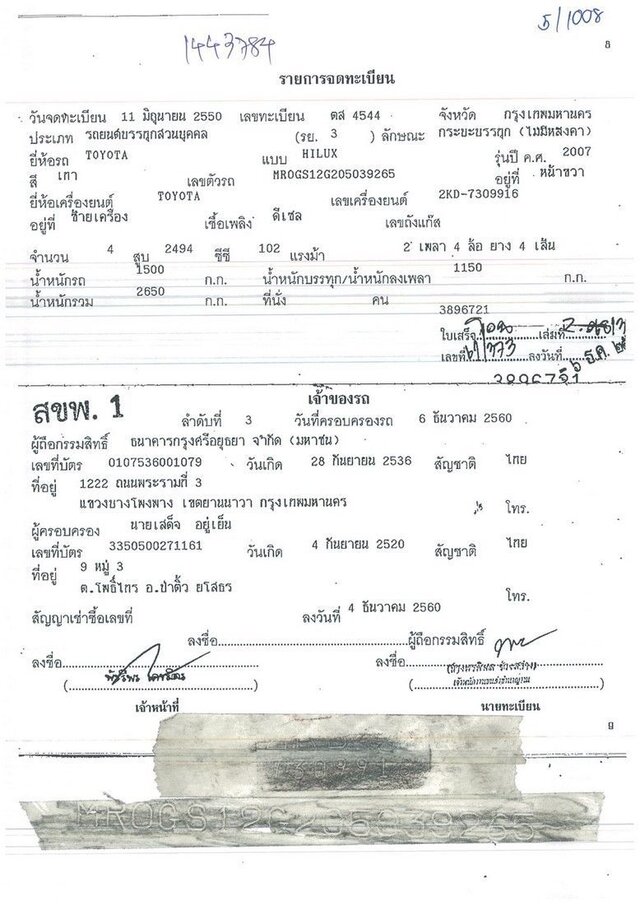 5/1008
1443784
8
รายการจดทะเบียน
วันจดทะเบียน 11 มิถุนายน 2550 เลขทะเบียน ตส 4544 จังหวัด กรุงเทพมหานคร
ประเภท รถยนต์บรรทุกส่วนบุคคล (รย. 3 ) ลักษณะ กระบะบรรทุก (ไม่มีหลังคา)
ยี่ห้อรถ TOYOTA แบบ HILUX รุ่นปี ค.ศ. 2007
สี เทา เลขตัวรถ MROGS12G205039265 อยู่ที่ หน้าขวา
ยี่ห้อเครื่องยนต์ TOYOTA เลขเครื่องยนต์ 2KD-7309916
อยู่ที่ ซ้ายเครื่อง เชื้อเพลิง ดีเซล เลขถังแก๊ส
จำนวน 4 สูบ 2494 ซีซี 102 แรงม้า 2 เพลา 4 ล้อ ยาง 4 เส้น
น้ำหนักรถ 1500 ก.ก. น้ำหนักบรรทุก/น้ำหนักลงเพลา 1150 ก.ก.
น้ำหนักรวม 2650 ก.ก. ที่นั่ง คน
3896721
ใบเสร็จ เล่มที่
เลขที่ ลงวันที่
เจ้าของรถ
สขพ. 1
ลำดับที่ 3 วันที่ครอบครองรถ 6 ธันวาคม 2560
ผู้ถือกรรมสิทธิ์ ธนาคารกรุงศรีอยุธยา จำกัด (มหาชน)
เลขที่บัตร 0107536001079 วันเกิด 28 กันยายน 2536 สัญชาติ ไทย
ที่อยู่ 1222 ถนนพระรามที่ 3
แขวงบางโพงพาง เขตยานนาวา กรุงเทพมหานคร โทร.
ผู้ครอบครอง นายเสด็จ อยู่เย็น
เลขที่บัตร 3350500271161 วันเกิด 4 กันยายน 2520 สัญชาติ ไทย
ที่อยู่ 9 หมู่ 3
ต.โพธิ์ไทร อ.ป่าติ้ว ยโสธร โทร.
สัญญาเช่าซื้อเลขที่ ลงวันที่ 4 ธันวาคม 2560
ลงชื่อ ผู้ถือกรรมสิทธิ์
ลงชื่อ ลงชื่อ
เจ้าหน้าที่ นายทะเบียน
9
MROGS12G205039265